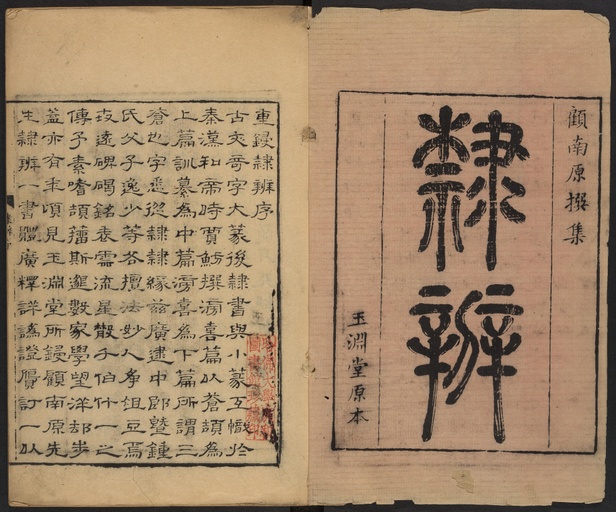 顧南原撰集
隸辨
玉淵堂原本
重鋟隸辨序
古文奇字大篆後隸書與小篆互幟於
秦漢和帝時賈魴撰滂喜篇以蒼頡為
上篇訓纂為中篇滂喜為下篇所謂三
蒼也字悉從隸隸緣茲廣逮中郎暨鍾
氏父子逸少等各擅法妙人爭俎豆焉
攷遠碑碣銘表霝流星散子伯什一之
傳予素嗜頡籀斯邈數家學望洋却步
蓋亦有年頃見玉淵堂所鋟顧南原先
生隸辨一書體廣釋詳譌證贗訂一以